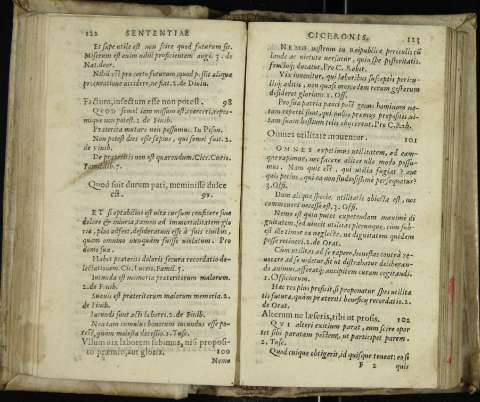 122 SENTENTIAE
Et sæpe utile est non scire quod futurum sit.
Miserum est enim nihil proficientem angi. 3. de
Nat. deor.
Nihil est pro certo futurum, quod possit aliqua
procuratione accidere, ne fiat. 2. de Divin.
Factum, infectum esse non potest. 98
QVOD semel iam missum est, coerceri, repri-
mique non potest. 2. de Finib.
Præterita mutare non possumus. In Pison.
Non potest
de Finib.
De præteritis non est quærendum. Cic. Curio.
Famil. lib. 7.
Quod fuit durum pati, meminisse dulce
est. 99.
ET si optabilius est vitæ cursum conficere sine
dolore & iniuria, tamen ad immortalitatem glo-
riæ, plus
quam omnino nunquam fuisse violatum. Pro
domo sua.
Habet præteriti doloris secura recordatio de-
lectationem. Cic. Lucceio. Famil. 5.
Iucunda est memoria præteritorum malorum.
2. de Finib.
Suavis est præteritorum malorum memoria. 2.
de Finib.
Iucundi sunt acti labores. 2. de Finib.
Non tam cumulus bonorum iucundus esse po-
test, quam molesta decessio. 1. Tusc.
Nullum vir laborem subimus, nisi proposi-
to præmio, aut gloria. 100
Nemo
CICERONIS. 123
NEMO vestrum in Reipublicæ periculis cū
laude ac virtute versatur, quin spe posteritatis,
fructuq; ducatur. Pro C. Rabir.
Vix invenitur, qui laboribus susceptis pericu-
lisq; aditis, non quasi mercedem rerum gestarum
desideret gloriam. 1. Off.
Pro sua patria pauci post genus hominum na-
tum reperti sunt, qui nullis præmiis propositis vi-
tam suam hostium telis obijcerent. Pro C. Rab.
Omnes utilitate moventur. 101
OMNES expetimus utilitatem, ad eam-
que rapimur, nec facere aliter ullo modo possu-
mus. Nam quis est, qui utilia fugiat? aut
quis potius, qui ea non studiosissime persequatur?
3. Offi.
Cum aliqua specie utilitatis obiecta est, nos
commoveri necesse est. 3. Offi.
Nemo est quin putet expetendam maxime di
gnitatem, sed vincit utilitas plerunque, cum sub-
est ille timor ea neglecta, ne dignitatem quidem
posse retineri. 2. de Orat.
Cum utilitas ad se rapere, honestas contrà re-
vocare ad se videtur, fit ut distrahatur deliberan-
do animus, afferatq; ancipitem curam cogitandi.
1. Officiorum.
Hæc res plus proficit, si proponatur spes utilita
tis futuræ, quàm præteriti beneficij recordatio. 2.
de Orat.
Alterum ne læseris, tibi ut prosis. 102
QVI alteri exitium parat, eum scire opor
tet sibi paratam pestem, ut participet parem.
2. Tusc.
Quod cuique obtigerit, id quisque teneat: eo si
F 2 quis